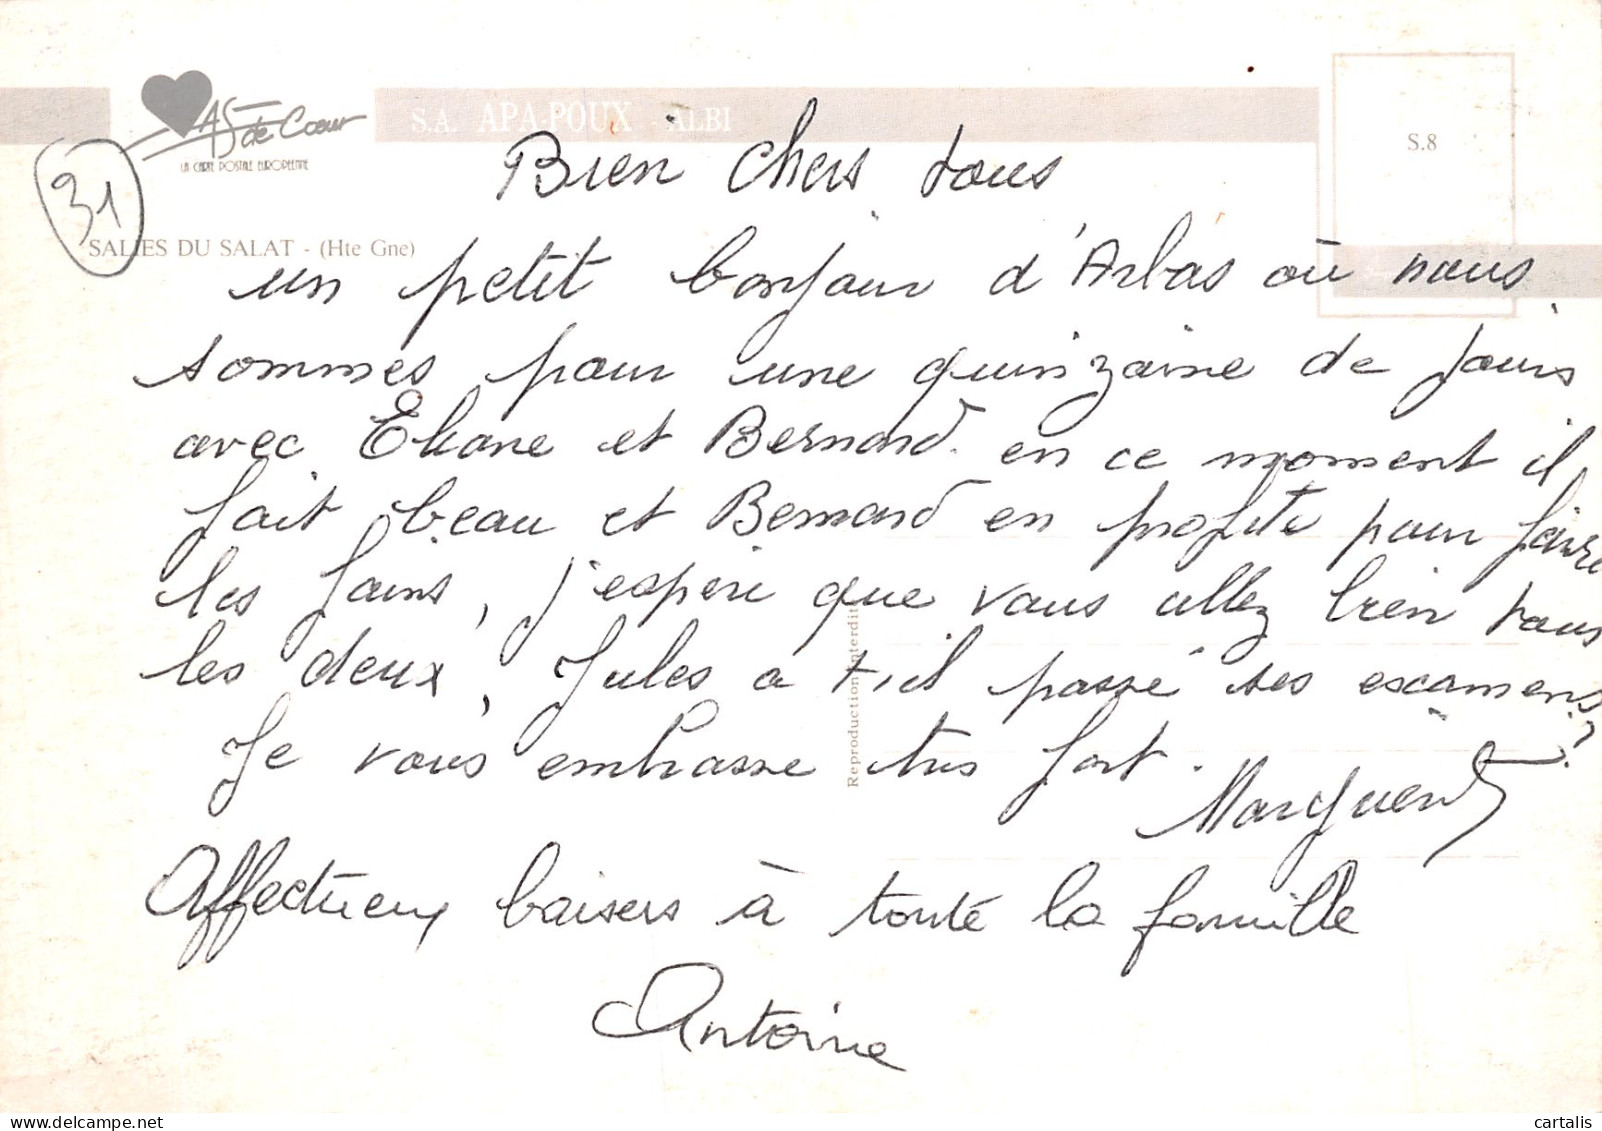 As de Cœur
LA CARTE POSTALE EUROPÉENNE
S.A. APA-POUX - ALBI
S.8
31
SALIES DU SALAT - (Hte Gne)
Bien chers tous
un petit bonjour d'Arbas où nous
sommes pour une quinzaine de jours
avec Eliane et Bernard. en ce moment il
fait beau et Bernard en profite pour faire
les foins, j'espère que vous allez bien tous
les deux, Jules a t-il passé ses examens?
Je vous embrasse très fort.
Marguerite
Affectueux baisers à toute la famille
Antoine
Reproduction interdite
cartalis
delcampe.net